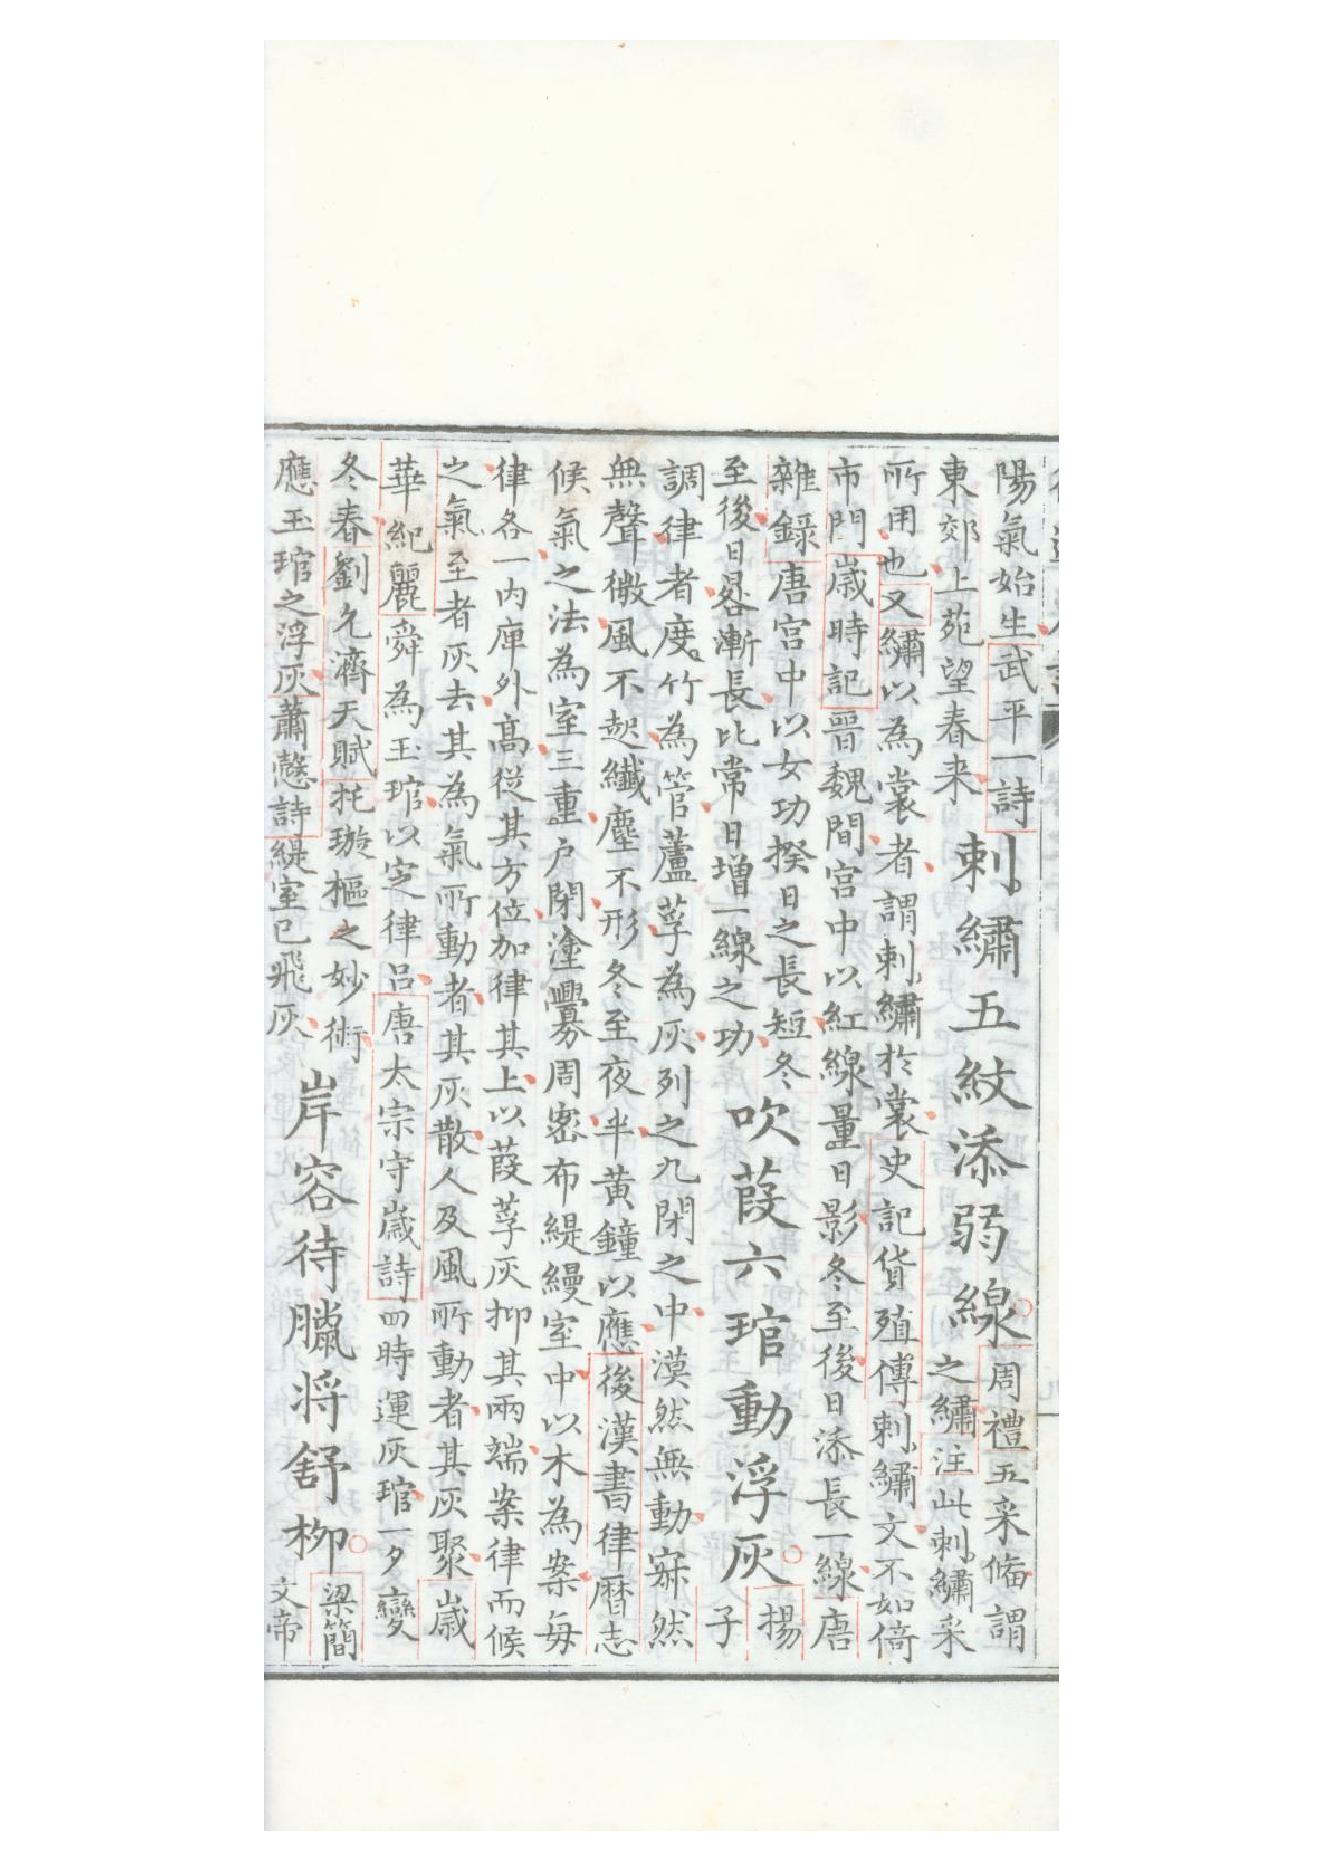 陽氣始生武平一詩
東郊上苑望春来
刺繡五紋添弱線
周禮五采俻謂
之繡注此刺繡采
所用也又繡以為裳者謂刺繡於裳史記貨殖傳刺繡文不如倚
市門歲時記晉魏間宮中以紅線量日影冬至後日添長一線唐
雜錄唐宮中以女功揆日之長短冬
至後日晷漸長比常日增一線之功
吹葭六琯動浮灰
揚
子
調律者度竹為管蘆莩為灰列之九閉之中漠然無動寂然
無聲微風不起纖塵不形冬至夜半黃鐘以應後漢書律曆志
候氣之法為室三重户閉塗釁周密布緹縵室中以木為案每
律各一内庳外高從其方位加律其上以葭莩灰抑其兩端案律而候
之氣至者灰去其為氣所動者其灰散人及風所動者其灰聚歲
華紀麗舜為玉琯以定律呂唐太宗守歲詩四時運灰琯一夕變
冬春劉允濟天賦托璇樞之妙術
應玉琯之浮灰蕭慤詩緹室已飛灰
岸容待臘将舒柳
梁簡
文帝